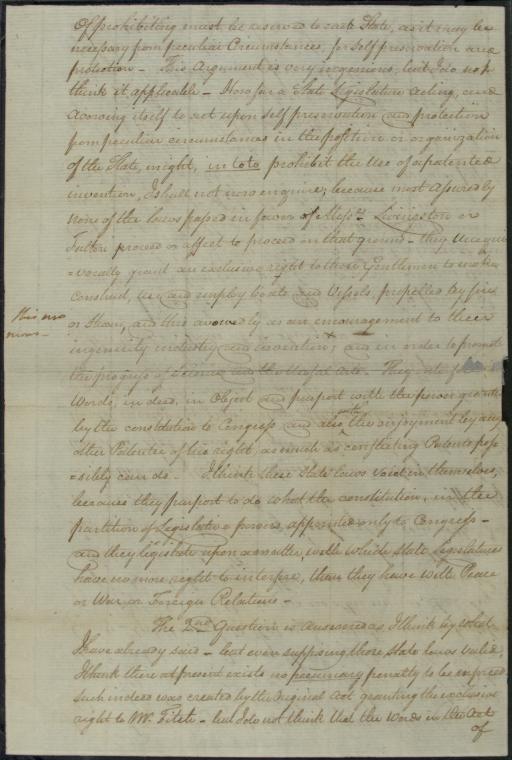 Of prohibiting must be reserved to each State, as it may be
necessary from peculiar Circumstances, for self preservation and
protection - This Argument is very ingenious, but I do not
think it applicable - How far a State Legislature acting, and
avowing itself to act upon self preservation and protection
from peculiar circumstances in the position or organization
of the State, might, in toto prohibit the use of a patented
invention, I shall not now enquire; because most assuredly
none of the laws passed in favour of Messrs Livingston or
Fulton proceed or affect to proceed on that ground - they unequi
=vocally grant an exclusive right to those Gentlemen to make
construct, use and employ boats and Vessels, propelled by fire
or Steam, and this avowedly as an encouragement to their
this no
more -
ingenuity industry and invention, and in order to promote
the progress of Science and the Useful Arts. They interfere
Words, indeed, in Object and purport with the power granted
by the constitution to Congress and also with the enjoyment by any
other Patentee of his right, as much as conflicting Patents poss
=sibly can do. - I think these State laws void in themselves,
because they purport to do what the constitution, in the
partition of Legislative powers, appointed only to Congress -
and they legislate upon a matter, with which State Legislatures
have no more right to interfere, than they have with Peace
or War or Foreign Relations -
The 2nd Question is answered as I think by what
I have already said - but even supposing those State laws valid,
I think there at present exists no pecuniary penalty to be enforced
such indeed was created by the original Act granting the exclusive
right to Mr. Fitch - but I do not think that the Words in the Act
of